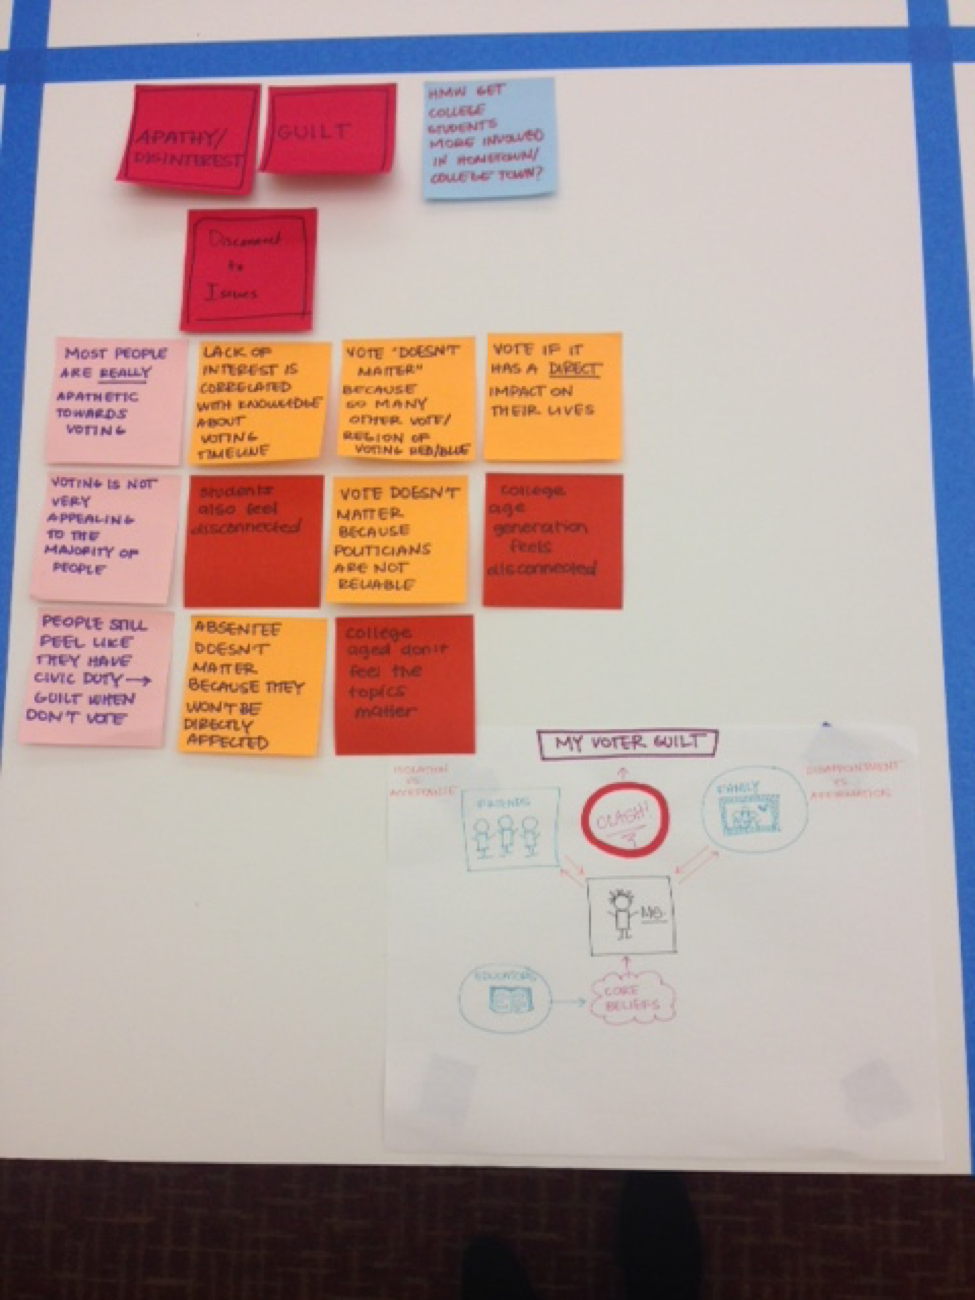 APATHY/
DISINTEREST
GUILT
HMW GET
COLLEGE
STUDENTS
MORE INVOLVED
IN HOMETOWN/
COLLEGE TOWN?
Disconnect
to
Issues
MOST PEOPLE
ARE REALLY
APATHETIC
TOWARDS
VOTING
LACK OF
INTEREST IS
CORRELATED
WITH KNOWLEDGE
ABOUT
VOTING
TIMELINE
VOTE "DOESN'T
MATTER"
BECAUSE
SO MANY
OTHER VOTE/
REGION OF
VOTING RED/BLUE
VOTE IF IT
HAS A DIRECT
IMPACT ON
THEIR LIVES
VOTING IS NOT
VERY
APPEALING
TO THE
MAJORITY OF
PEOPLE
students
also feel
disconnected
VOTE DOESN'T
MATTER
BECAUSE
POLITICIANS
ARE NOT
RELIABLE
college
age
generation
feels
disconnected
PEOPLE STILL
FEEL LIKE
THEY HAVE
CIVIC DUTY →
GUILT WHEN
DON'T VOTE
ABSENTEE
DOESN'T
MATTER
BECAUSE THEY
WON'T BE
DIRECTLY
AFFECTED
college
aged don't
feel the
topics
matter
MY VOTER GUILT
ISOLATION
VS
ACCEPTANCE
FRIENDS
CLASH!
FAMILY
DISAPPOINTMENT
VS
AFFIRMATION
ME
EDUCATORS
CORE
BELIEFS